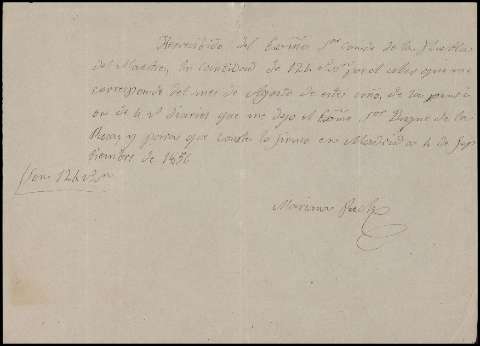 He recibido del Exmo Sor Conde de la Puebla
del Maestre, la cantidad de 124 rs por el haber que me
corresponde del mes de Agosto de este año, de la pensi
on de 4 rs diarios que me dejo el Exmo Sor Duque de la
Roca, y para que conste lo firmo en Madrid a 4 de Sep
tiembre de 1856
Son 124 rs vn
Mariana